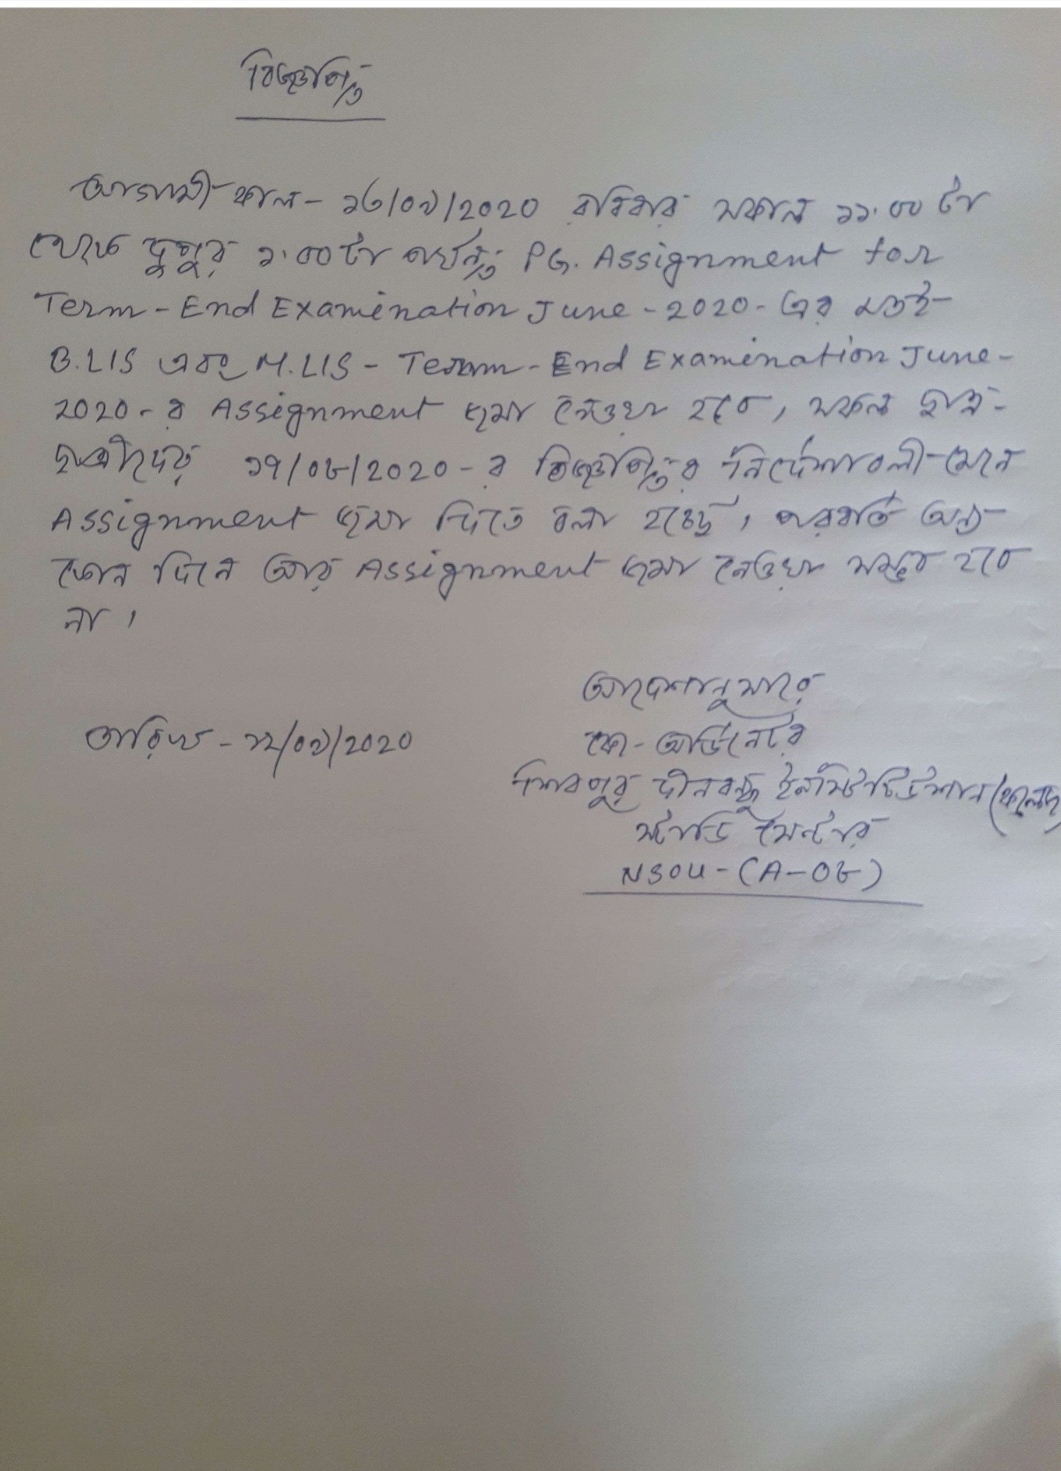 বিজ্ঞপ্তি
আগামী কাল - ১৩/০৯/2020 রবিবার সকাল ১১.০০ টা
থেকে দুপুর ১.০০ টা পর্যন্ত PG. Assignment for
Term - End Examination June - 2020 - এর মতই
B.LIS এবং M.LIS - Term - End Examination June -
2020 - র Assignment জমা নেওয়া হবে, সকল ছাত্র-
ছাত্রীদের ১৭/০৮/2020 - র বিজ্ঞপ্তির নির্দেশাবলী মেনে
Assignment জমা দিতে বলা হচ্ছে, পরবর্তি অন্য
কোন দিনে আর Assignment জমা নেওয়া সম্ভব হবে
না ,
আদেশানুসারে
তারিখ - ১২/০৯/2020
কো-অর্ডিনেটর
শিবপুর দীনবন্ধু ইনস্টিটিউশান (কলেজ)
স্টাডি সেন্টার
NSOU - (A-০৮)